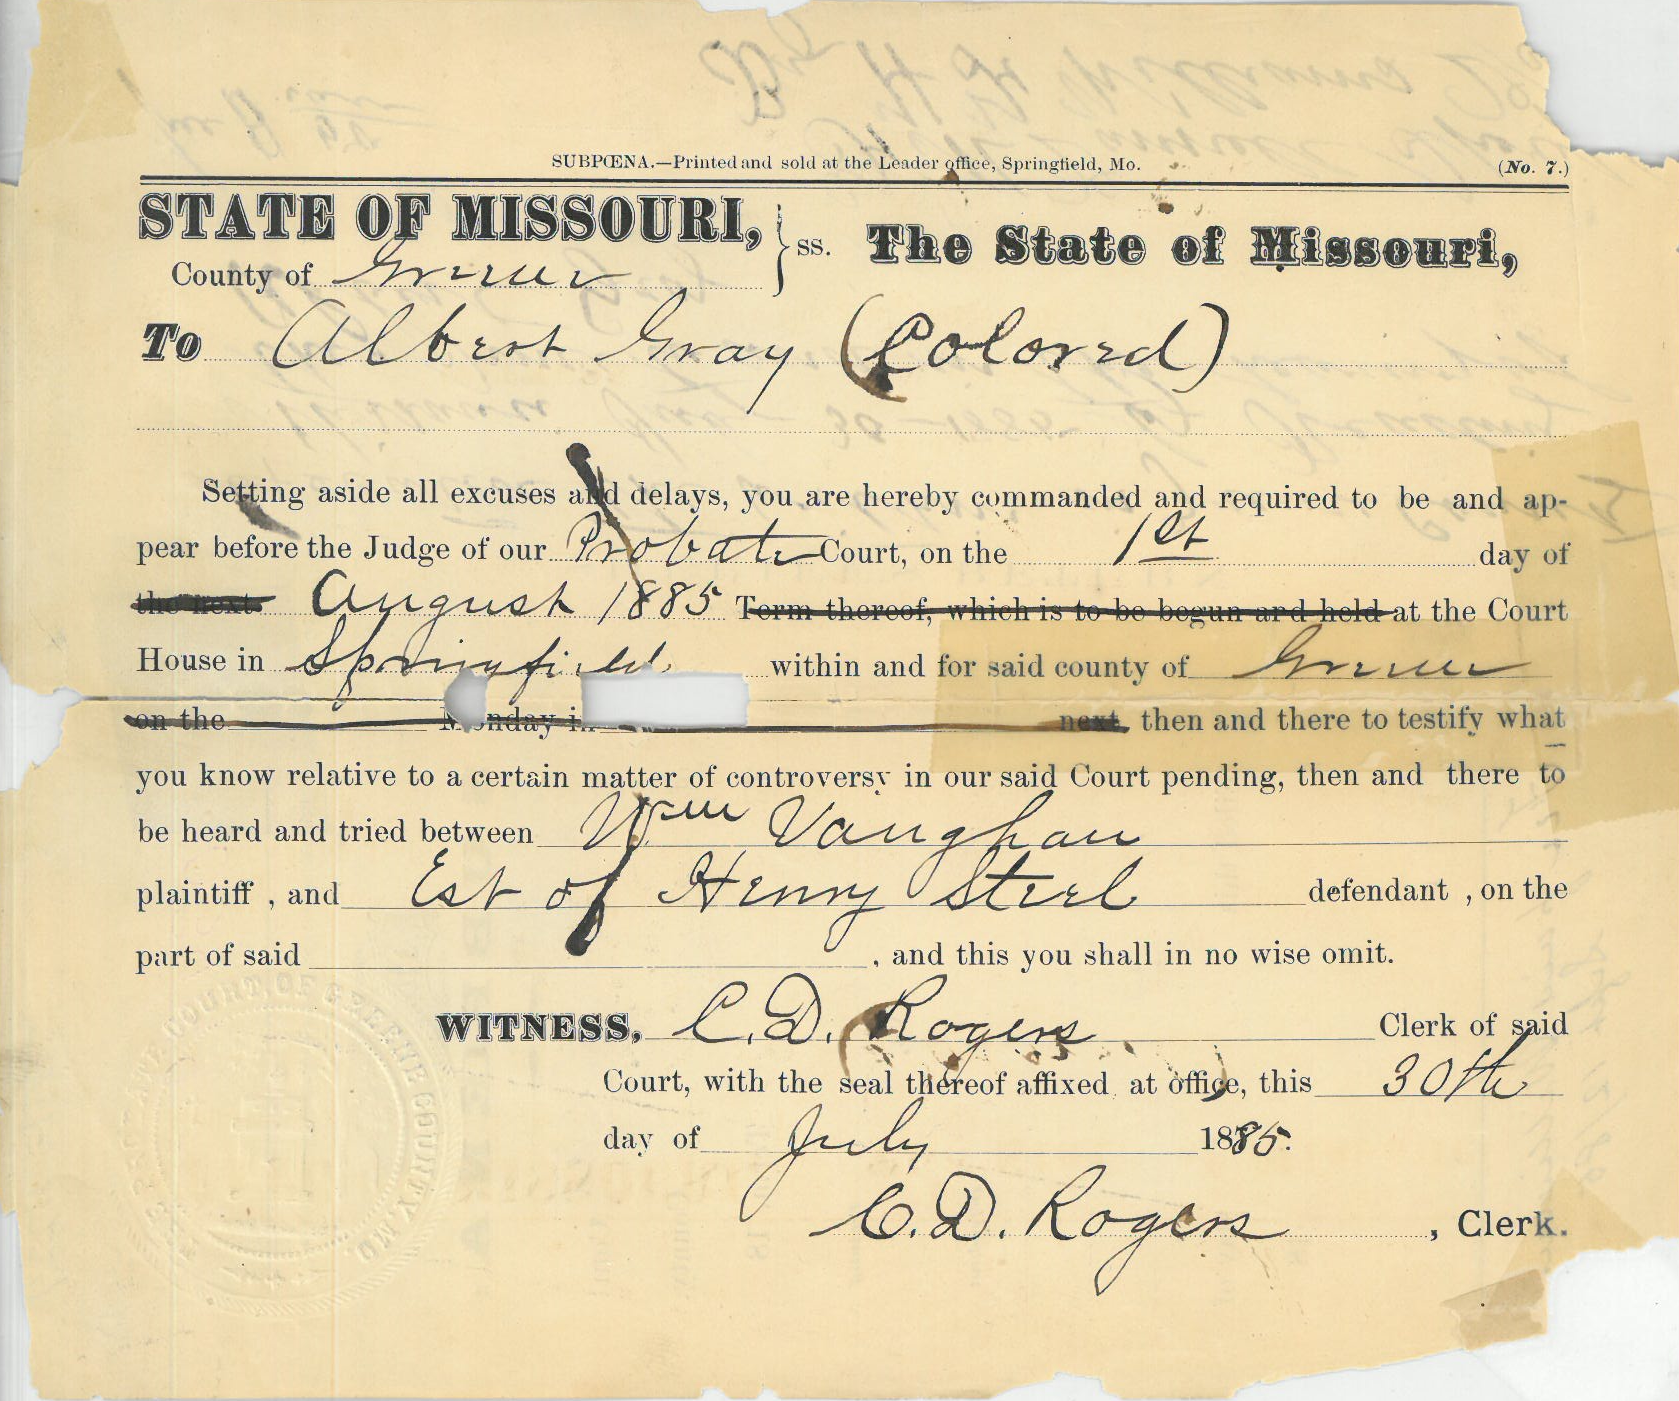 SUBPŒNA.—Printed and sold at the Leader office, Springfield, Mo. (No. 7.)
STATE OF MISSOURI, } ss. The State of Missouri,
County of Greene
To Albert Gray (Colored)
Setting aside all excuses and delays, you are hereby commanded and required to be and ap-
pear before the Judge of our Probate Court, on the 1st day of
the next August 1885 Term thereof, which is to be begun and held at the Court
House in Springfield within and for said county of Greene
on the Monday in next, then and there to testify what
you know relative to a certain matter of controversy in our said Court pending, then and there to
be heard and tried between Wm Vaughan
plaintiff , and Est of Henry Steel defendant , on the
part of said , and this you shall in no wise omit.
WITNESS, C.D. Rogers Clerk of said
Court, with the seal thereof affixed at office, this 30th
day of July 1885.
C.D. Rogers , Clerk.
COURT OF GREENE COUNTY, MO.